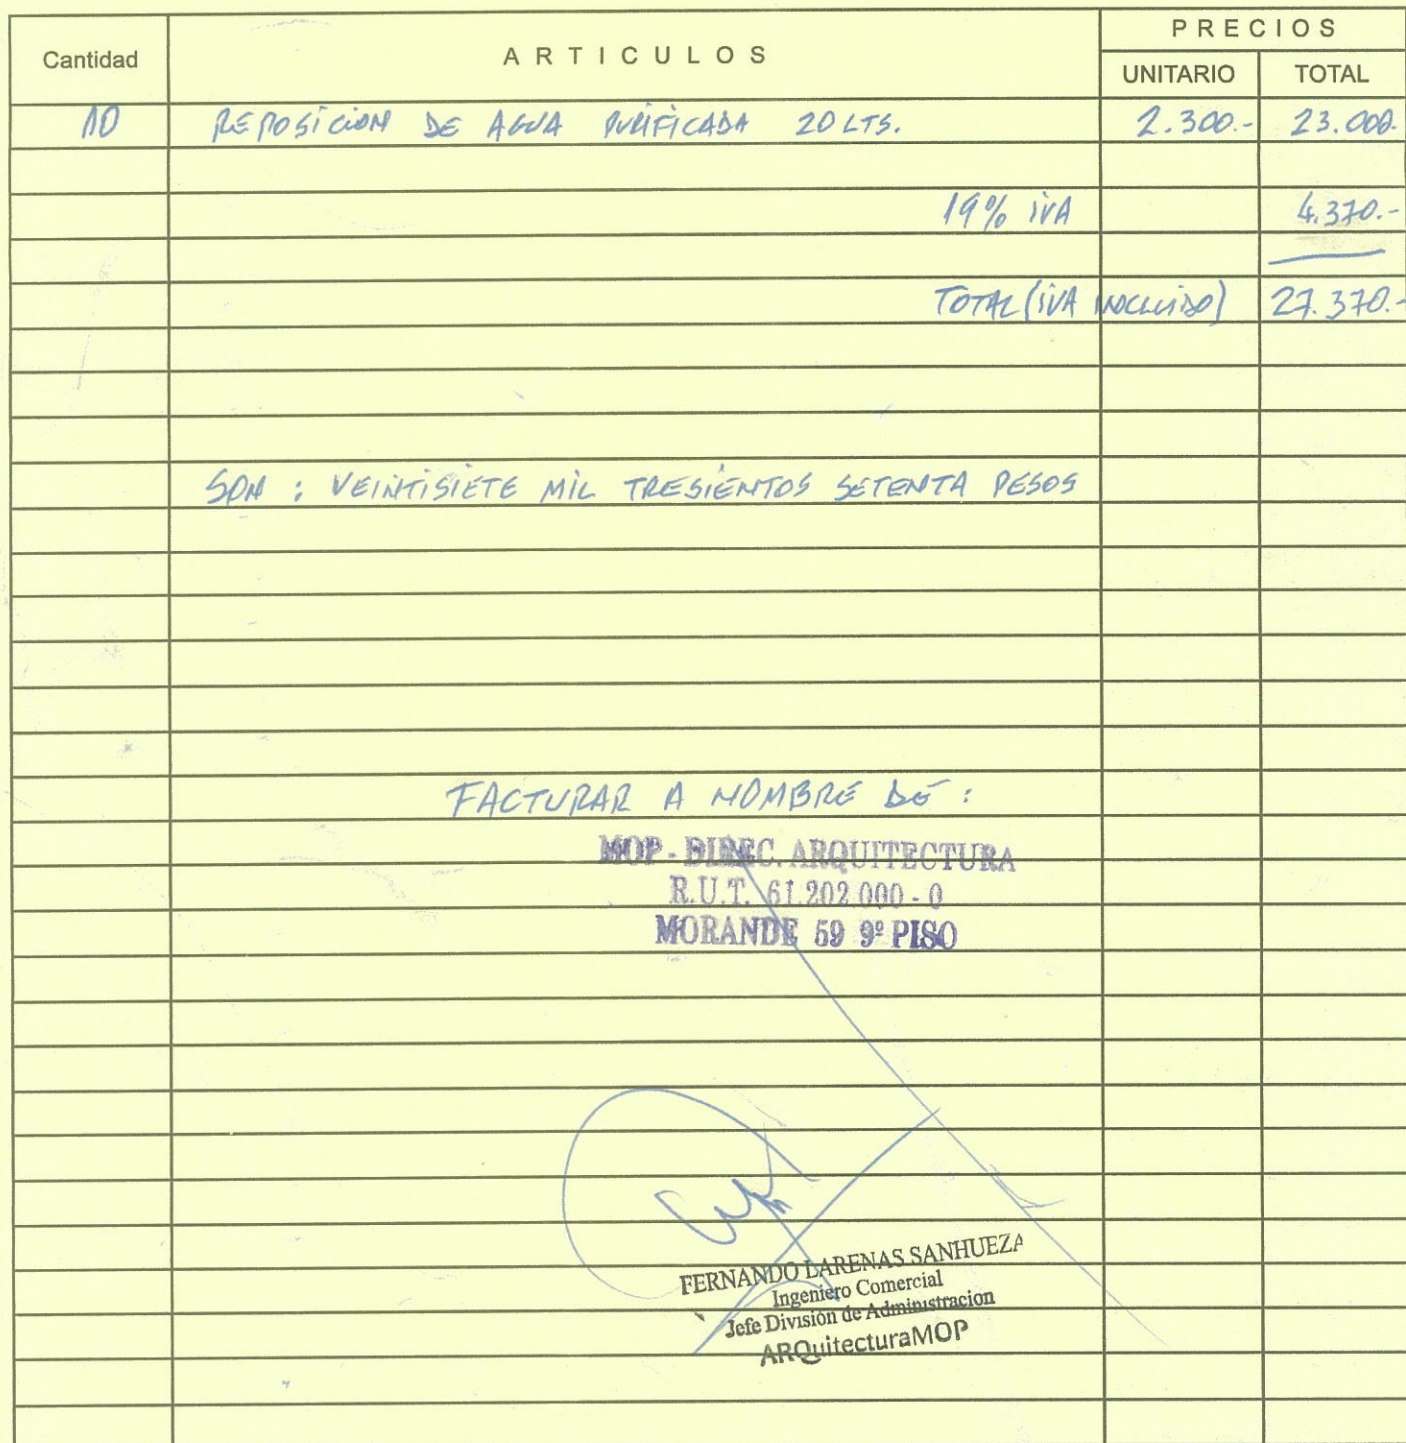 Cantidad ARTICULOS PRECIOS
UNITARIO TOTAL
10 REPOSICION DE AGUA PURIFICADA 20 LTS. 2.300.- 23.000.
19% IVA 4.370.-
TOTAL (IVA INCLUIDO) 27.370.-
SON : VEINTISIETE MIL TRESIENTOS SETENTA PESOS
FACTURAR A NOMBRE DE :
MOP - DIREC. ARQUITECTURA
R.U.T. 61.202.000 - 0
MORANDE 59 9º PISO
FERNANDO LARENAS SANHUEZA
Ingeniero Comercial
Jefe División de Administracion
ARQuitecturaMOP